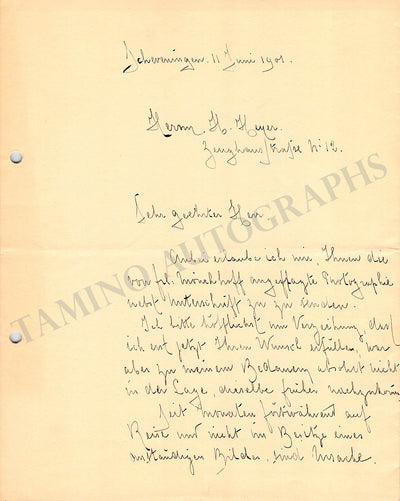 Scheveningen. 11 Juni 1901.
Herrn H. Heyer.
Zeughausstraße No 12.
Sehr geehrter Herr
erlaube ich mir, Ihnen die
von Frl. angefragte Photographie
nebst Unterschrift zu zu senden.
Ich bitte höflichst um Verzeihung, dass
ich erst jetzt Ihren Wunsch erfülle, war
aber zu meinem Bedauern absolut nicht
in der Lage, denselben früher nachzukom
Seit Monaten fortwährend auf
Reise und nicht im Besitze eines
anständigen Bildes, sind Ursache.
TAMINO AUTOGRAPHS